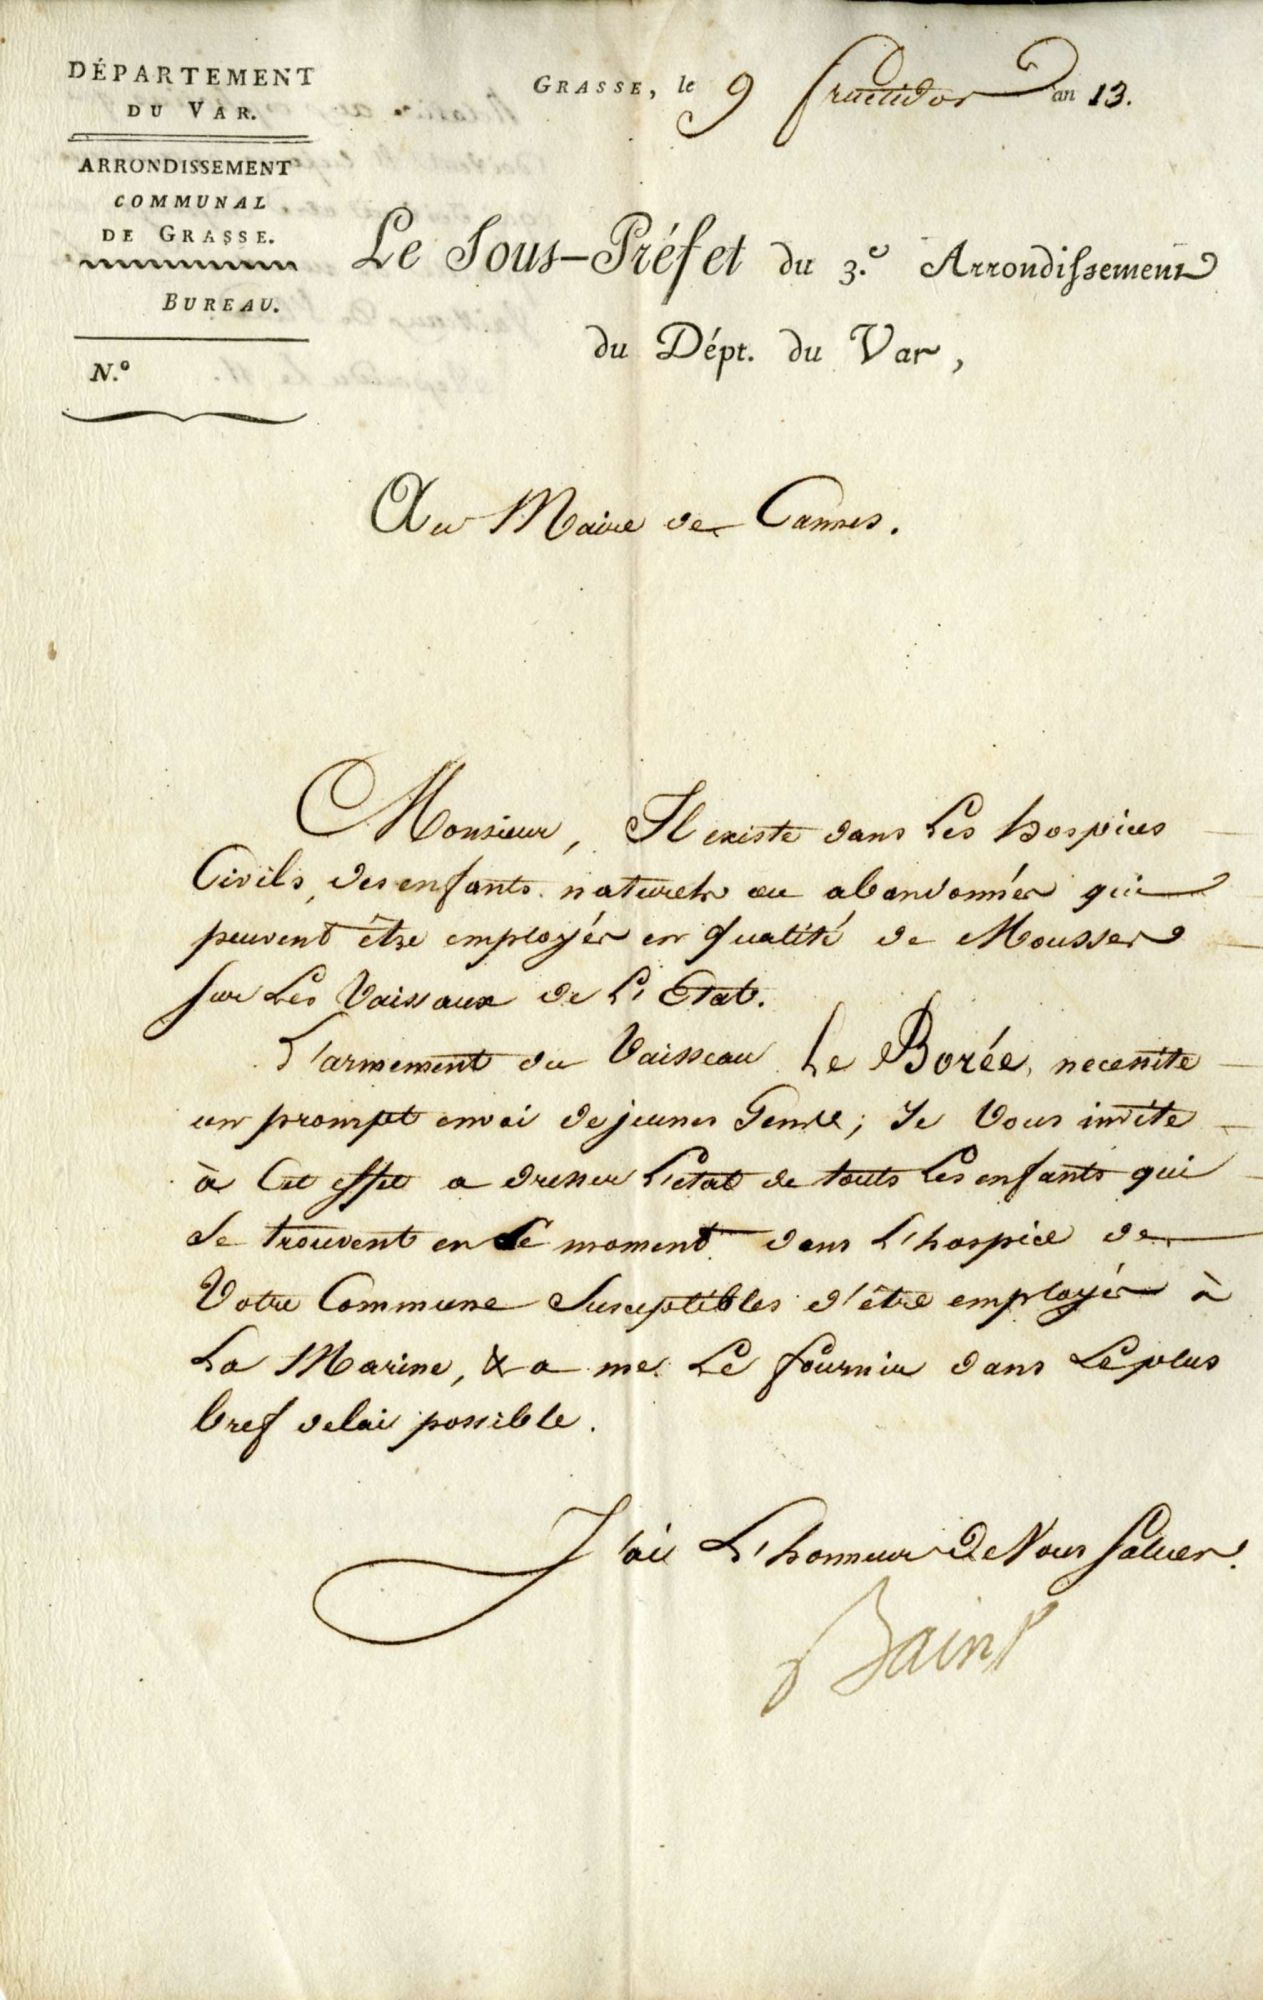 DÉPARTEMENT
DU VAR.
ARRONDISSEMENT
COMMUNAL
DE GRASSE.
BUREAU.
N.º
GRASSE, le 9 fructidor an 13.
Le Sous-Préfet du 3.e Arrondissement
du Dépt. du Var,
Au Maire de Cannes.
Monsieur, Il existe dans Les hospices
Civils, des enfants naturels ou abandonnés qui
peuvent être employés en qualité de Mousses
sur Les Vaissaux de L'Etat.
L'armement du Vaisseau Le Borée, necessite
un prompt envoi de jeunes Gens; Je Vous invite
à Cet effet a dresser L'état de touts Les enfants qui
se trouvent en ce moment dans L'hospice de
Votre Commune Susceptibles d'être employés à
La Marine, & a me Le fournir dans Le plus
bref delai possible.
J'ai L'honneur de Vous saluer.